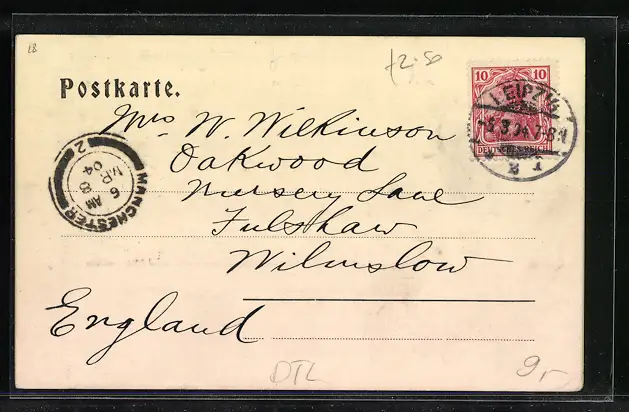 18
£2.50
Postkarte.
10 10
DEUTSCHES REICH
LEIPZIG
3.04.7-8V
2
MANCHESTER
6 AM
MR 8
04
2
Mrs W. Wilkinson
Oakwood
Nursery Lane
Fulshaw
Wilmslow
England
DTL
9,-